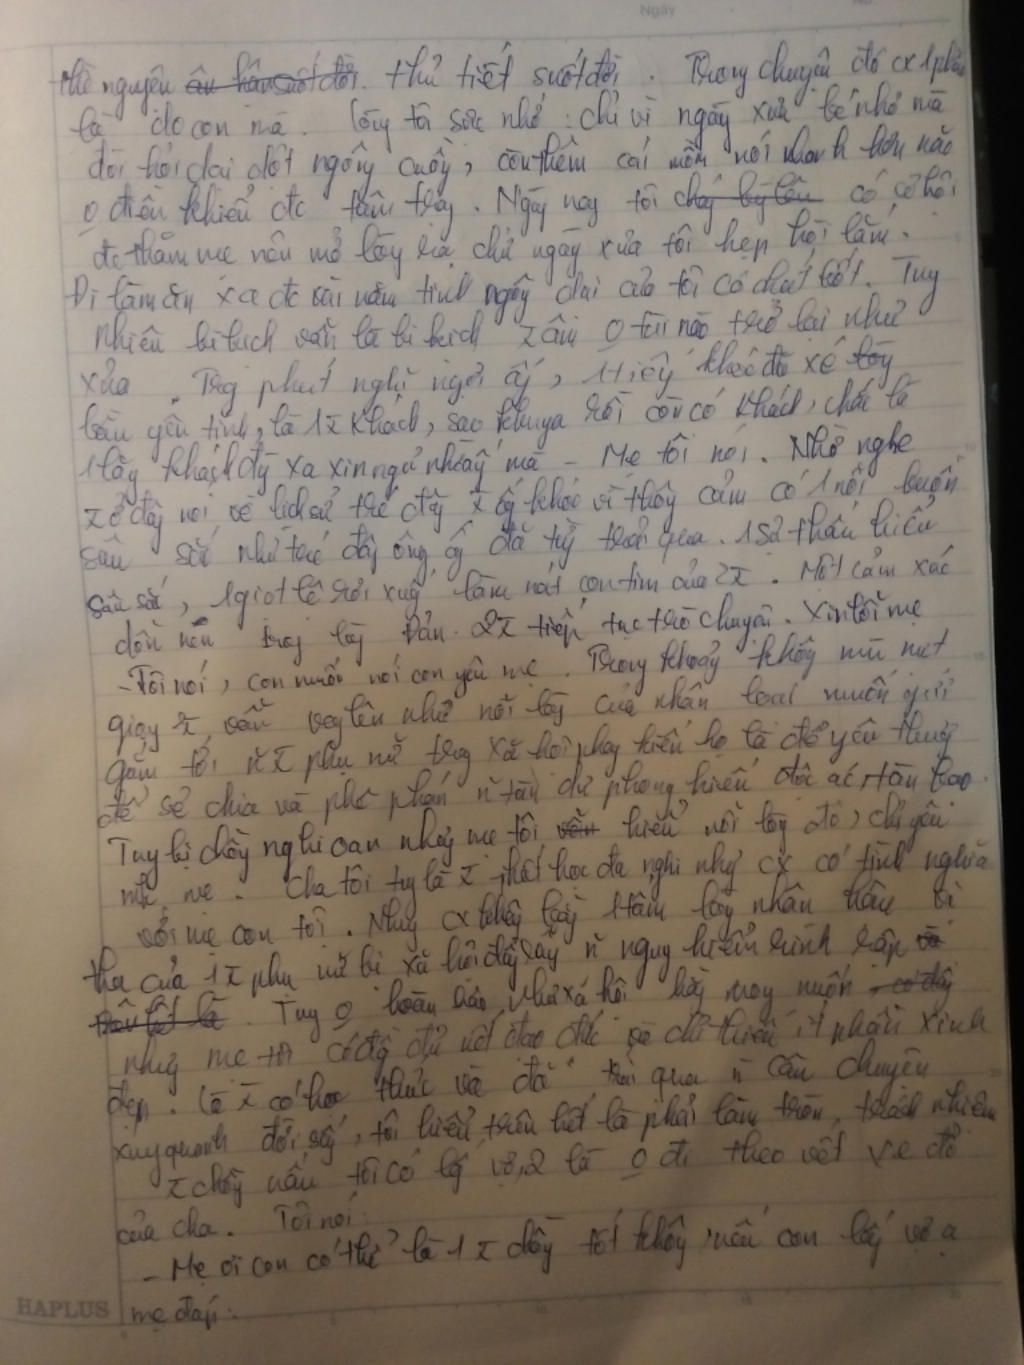 Ngày
thề nguyện ân hận suốt đời. thủ tiết suốt đời. Trong chuyện đó cx 1 phần
là do con mà. lòng tôi sực nhớ: chỉ vì ngày xưa bé nhỏ mà
đòi hỏi dại dột ngông cuồng, còn thêm cái mồm nói nhanh hơn não
o điều khiển đc tâm trạng. Ngày nay tôi có cơ hội
đc thăm mẹ nên mở lòng ra, chứ ngày xưa tôi hẹp hòi lắm.
Đi làm ăn xa đc vài năm tính ngông dại của tôi có chút bớt. Tuy
nhiên bi kịch vẫn là bi kịch o tài nào trở lại như
xưa. Trg phút nghỉ ngơi ấy, 1 tiếng khóc đã xé
bầu yên tĩnh, là 1 khách, sao khuya rồi còn có khách, chắc là
khách đg xa xin ngủ nhờ ấy mà - Mẹ tôi nói. Nhờ nghe
ở đây nói về lịch sử thế đấy ấy khóc vì thấy cảm có 1 nỗi buồn
sâu sắc như thế đấy ông ấy đã từng trải qua. 1 sự thấu hiểu
sâu sắc, 1 giọt lệ rơi xuống làm nát con tim của 2. Một cảm xúc
dồn nén trong lòng. 2 tiếp tục trò chuyện. Xin lỗi mẹ
- Tôi nói, con muốn nói con yêu mẹ. Trong khoảng không mù mịt
vẫn vang lên như nỗi lòng của nhân loại muốn gửi
gắm tới phụ nữ trg xã hội phong kiến họ là để yêu thương
để sẻ chia và phê phán tàn dư phong kiến độc ác tàn bạo.
Tuy bị chồng nghi oan nhưng mẹ tôi vẫn hiểu nỗi lòng đó, chỉ yêu
mẹ. Cha tôi tuy là thất học đa nghi nhưng cx có tình nghĩa
với mẹ con tôi. Nhưng cx tấm lòng nhân hậu vị
tha của 1 phụ nữ bị xã hội đầy rẫy nguy hiểm rình rập
Tuy o hoàn hảo như xã hội hằng mong muốn
nhưng mẹ tôi có đầy đủ nết đạo đức và chỉ thiếu ít phần xinh
đẹp. Là có học thức và đã trải qua câu chuyện
xung quanh đời sống, tôi hiểu trên hết là phải làm tròn trách nhiệm
chồng nếu tôi có lấy vợ, 2 là o đi theo vết xe đổ
của cha. Tôi nói:
- Mẹ ơi con có thể là 1 chồng tốt không, nếu con lấy vợ ạ
mẹ đáp:
HAPLUS